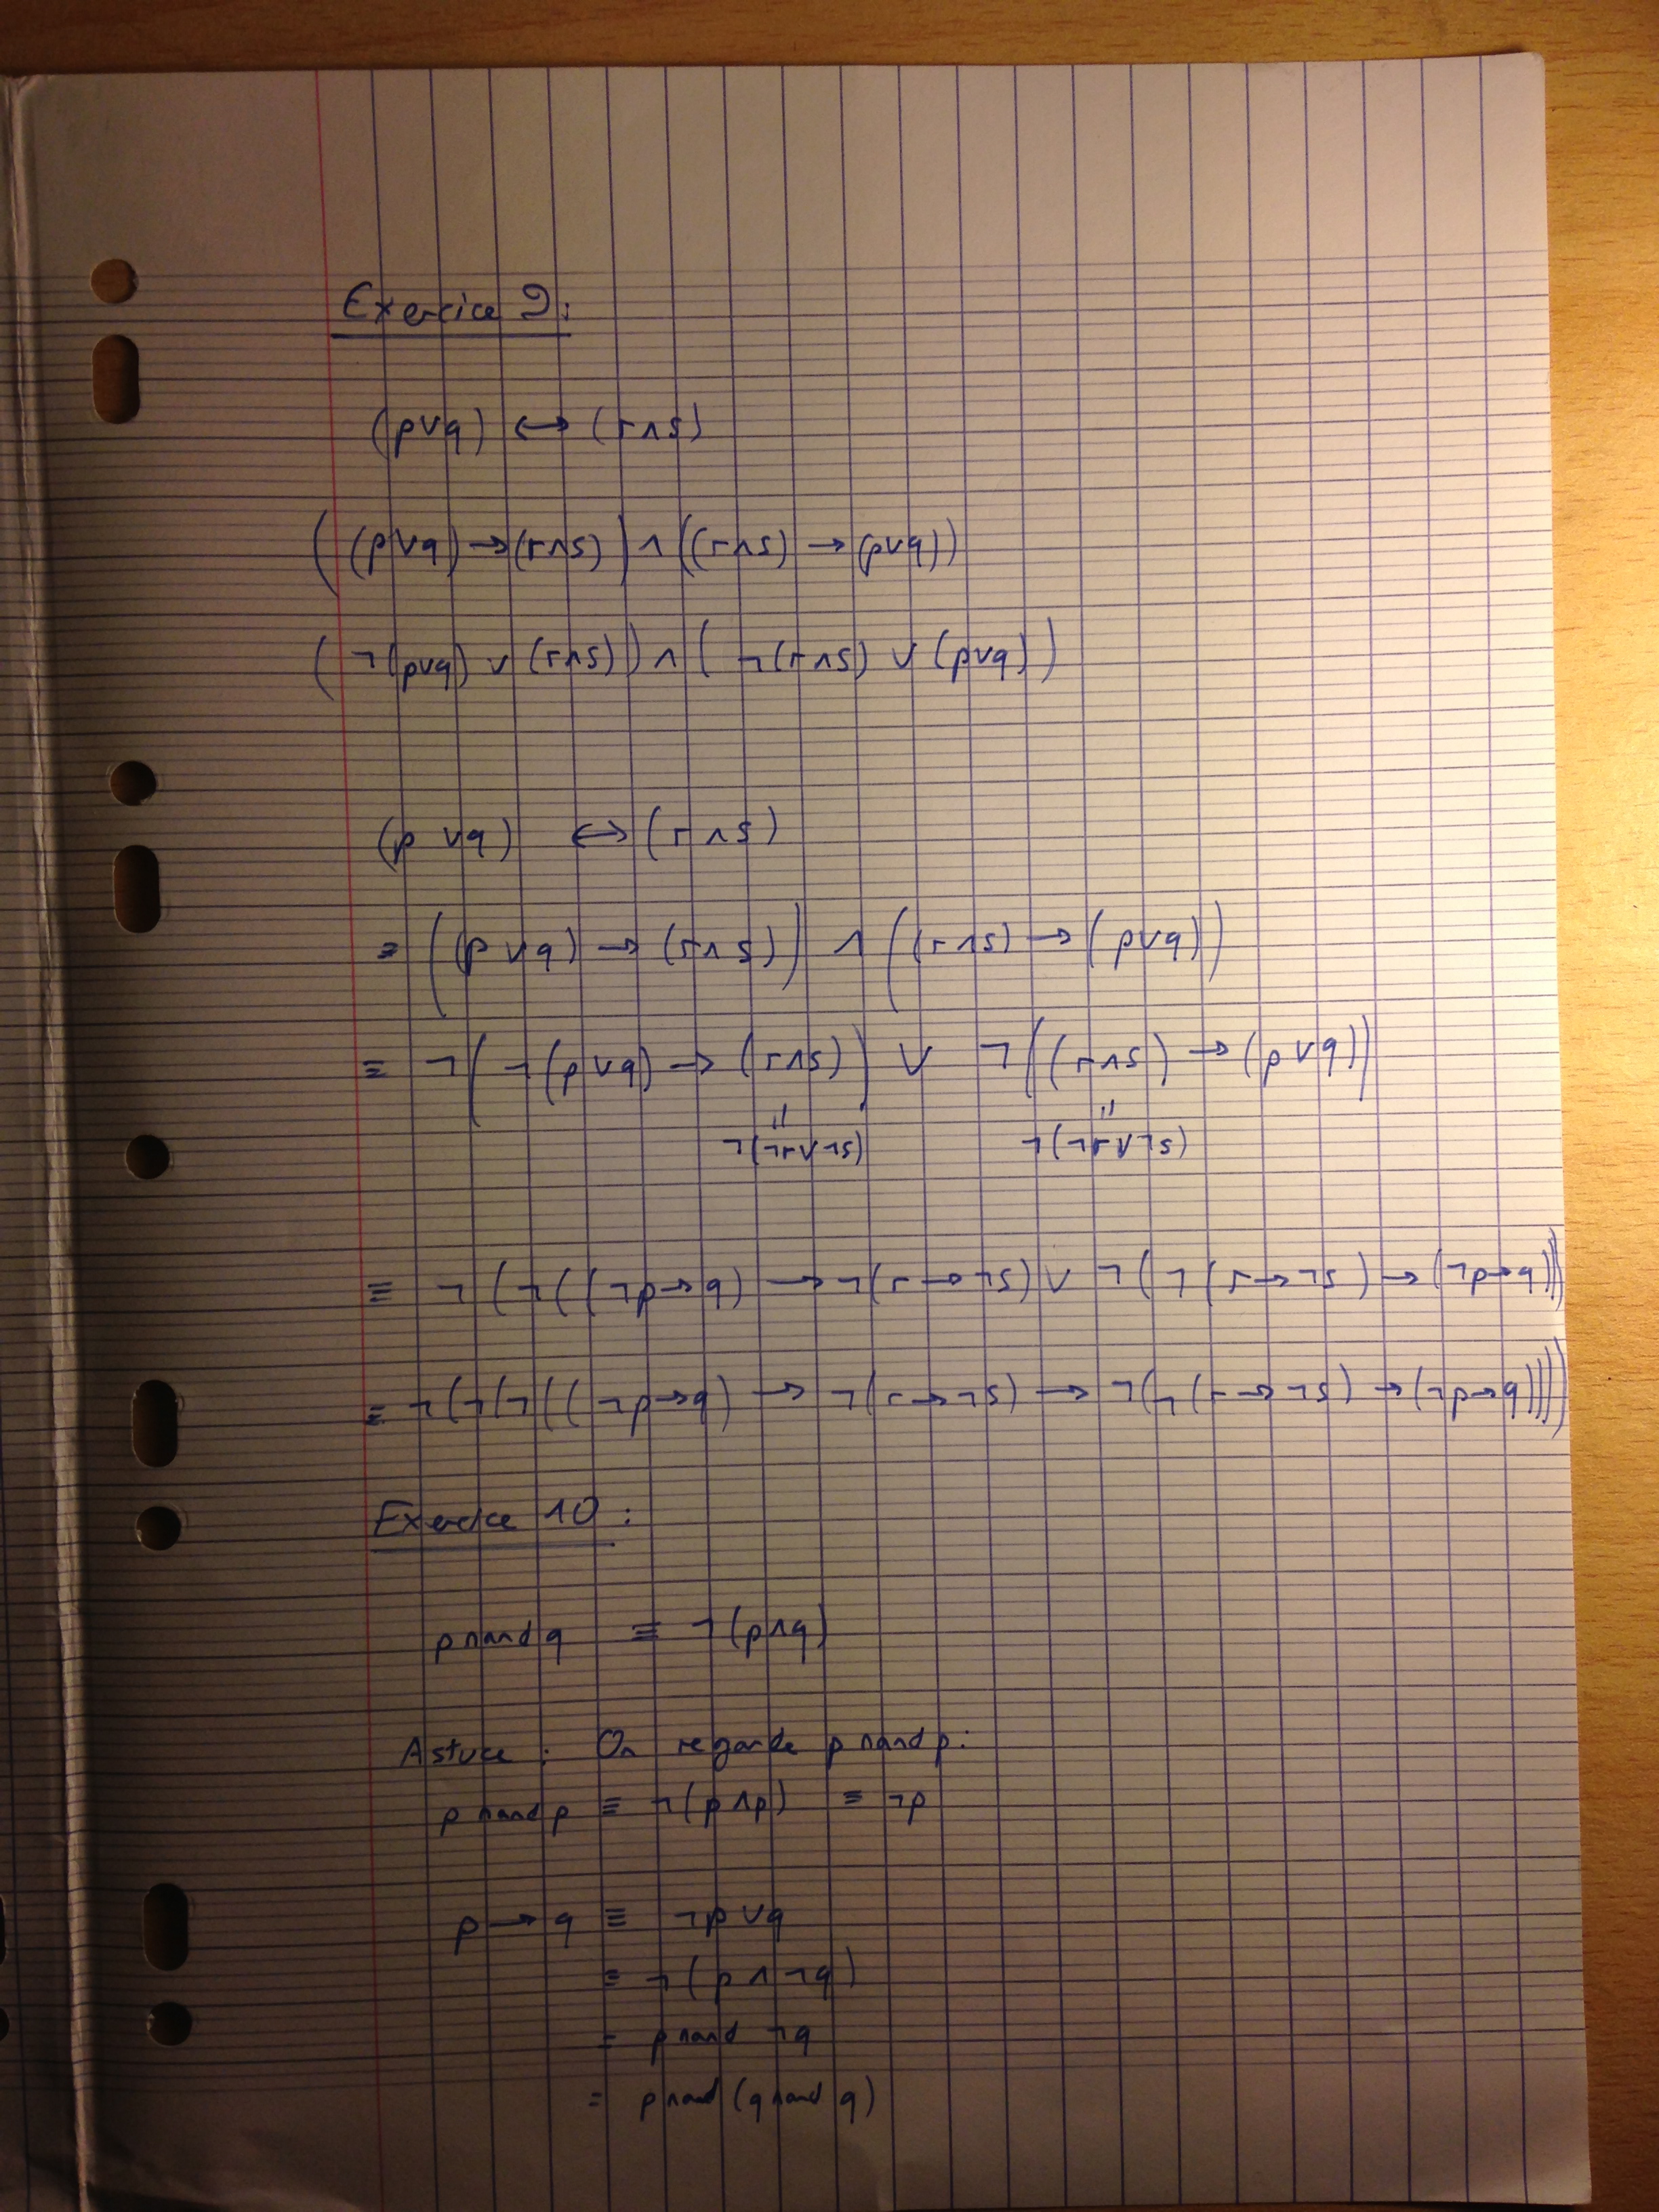 Exercice 9:
(p∨q) ↔ (r∧s)
((p∨q) → (r∧s)) ∧ ((r∧s) → (p∨q))
(¬(p∨q) ∨ (r∧s)) ∧ (¬(r∧s) ∨ (p∨q))
(p ∨q) ↔ (r ∧s)
≡ ((p ∨q) → (r∧s)) ∧ ((r∧s) → (p∨q))
≡ ¬(¬(p∨q) → (r∧s)) ∨ ¬((r∧s) → (p∨q))
= =
¬(¬r∨¬s) ¬(¬r∨¬s)
≡ ¬(¬((¬p→q) → ¬(r→¬s) ∨ ¬(¬(r→¬s) → (¬p→q)))
≡ ¬(¬(¬((¬p→q) → ¬(r→¬s) → ¬(¬(r→¬s) → (¬p→q))))
Exercice 10:
p nand q ≡ ¬(p∧q)
Astuce : On regarde p nand p:
p nand p ≡ ¬(p∧p) ≡ ¬p
p → q ≡ ¬p∨q
≡ ¬(p∧¬q)
= p nand ¬q
= p nand (q nand q)